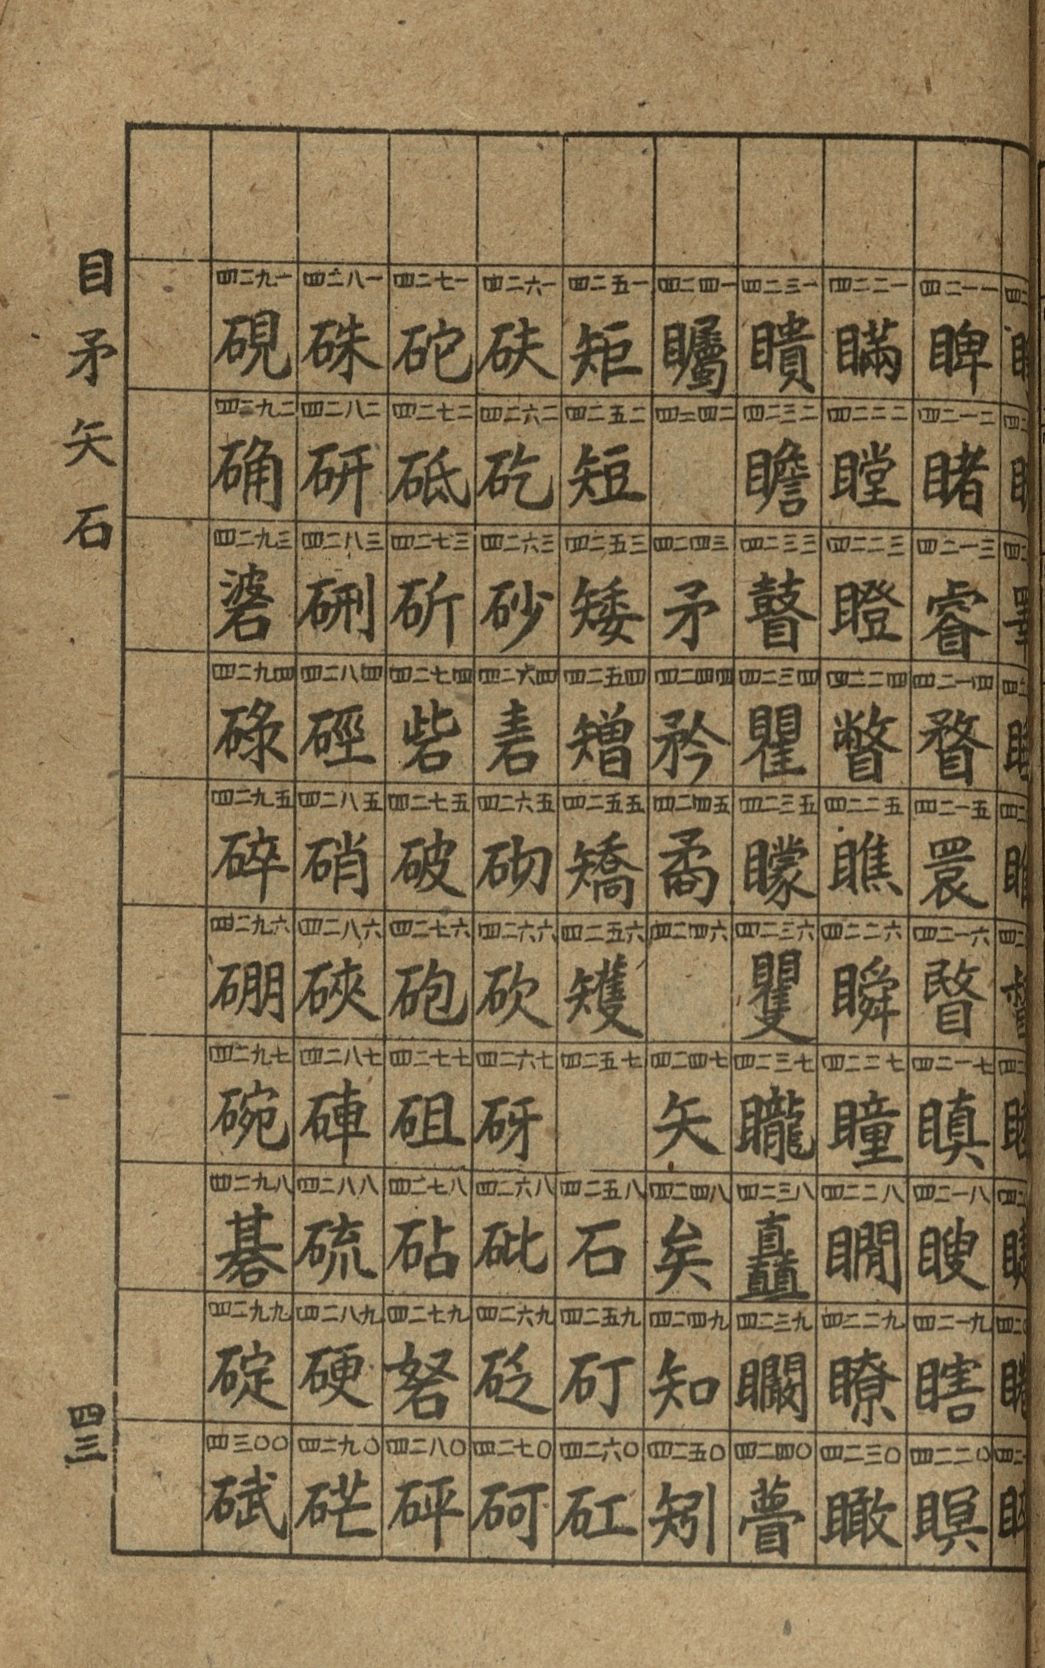 四二一一 睥
四二一二 睹
四二一三 睿
四二一四 瞀
四二一五 睘
四二一六
四二一七 瞋
四二一八 瞍
四二一九 瞎
四二二〇 瞑
四二二一 瞞
四二二二 瞠
四二二三 瞪
四二二四 瞥
四二二五 瞧
四二二六 瞬
四二二七 瞳
四二二八 瞯
四二二九 瞭
四二三〇 瞰
四二三一 瞶
四二三二 瞻
四二三三 瞽
四二三四 瞿
四二三五 矇
四二三六 矍
四二三七 矓
四二三八 矗
四二三九 矙
四二四〇 瞢
四二四一 矚
四二四二
四二四三 矛
四二四四 矜
四二四五 矞
四二四六
四二四七 矢
四二四八 矣
四二四九 知
四二五〇 矧
四二五一 矩
四二五二 短
四二五三 矮
四二五四 矰
四二五五 矯
四二五六 矱
四二五七
四二五八 石
四二五九 矴
四二六〇 矼
四二六一 砆
四二六二 矻
四二六三 砂
四二六四 砉
四二六五 砌
四二六六 砍
四二六七 砑
四二六八 砒
四二六九 砭
四二七〇 砢
四二七一 砣
四二七二 砥
四二七三 斫
四二七四 砦
四二七五 破
四二七六 砲
四二七七 砠
四二七八 砧
四二七九 砮
四二八〇 砰
四二八一 硃
四二八二 研
四二八三 硎
四二八四 硜
四二八五 硝
四二八六 硤
四二八七 硨
四二八八 硫
四二八九 硬
四二九〇 硭
四二九一 硯
四二九二 确
四二九三 碆
四二九四 碌
四二九五 碎
四二九六 硼
四二九七 碗
四二九八 碁
四二九九 碇
四三〇〇 碔
目矛矢石
四三